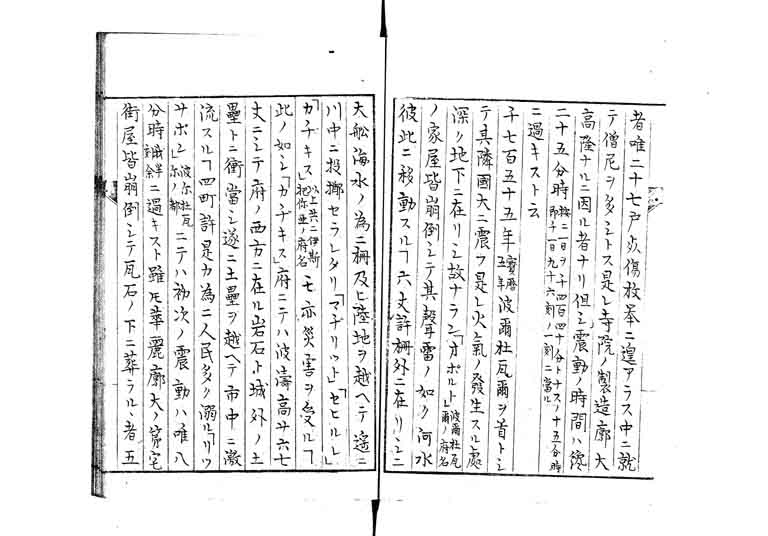 者唯二十七戸炎傷枚挙ニ遑アラス中ニ就
テ僧尼ヲ多シトス是レ寺院ノ製造廓大
高隆ナルニ因ル者ナリ但シ震動ノ時間ハ纔
二十五分時按ニ一日ヲ千四百四十分ト十スノ十五分時
即チ一日九十六刻ノ一刻ニ當ル
ニ過キスト云
千七百五十五年寶暦五年波爾杜瓦爾ヲ首トシ
テ其隣國大ニ震フ是レ火氣ノ發生スル處
深ク地下ニ在リシ故ナラン「オポルト」波爾杜瓦爾ノ府名
ノ家屋皆崩倒シテ其聲雷ノ如ク河水
彼此ニ移動スルヿ六丈許柵外ニ在リシ二
大舩海水ノ為ニ柵及ヒ陸地ヲ越ヘテ遙ニ
川中ニ投擲セラレタリ「マデリット」「セヒルレ」
「カヂキス」以上共ニ伊斯把你亜ノ府名モ亦災害ヲ受ルヿ
此ノ如シ「カヂキス」府ニテハ波濤高サ六七
丈ニシテ府ノ西方ニ在ル岩石ト城外ノ土
壘トニ衝當シ遂ニ土壘ヲ越ヘテ市中ニ激
流スルヿ四町許是カ為ニ人民多ク溺ル「リッ
サボン」波尔杜瓦尔ノ都ニテハ初次ノ震動ハ唯八
分時ニ過キスト雖モ華麗廓大ノ第宅
街屋皆崩倒シテ瓦石ノ下ニ葬ラルヽ者五